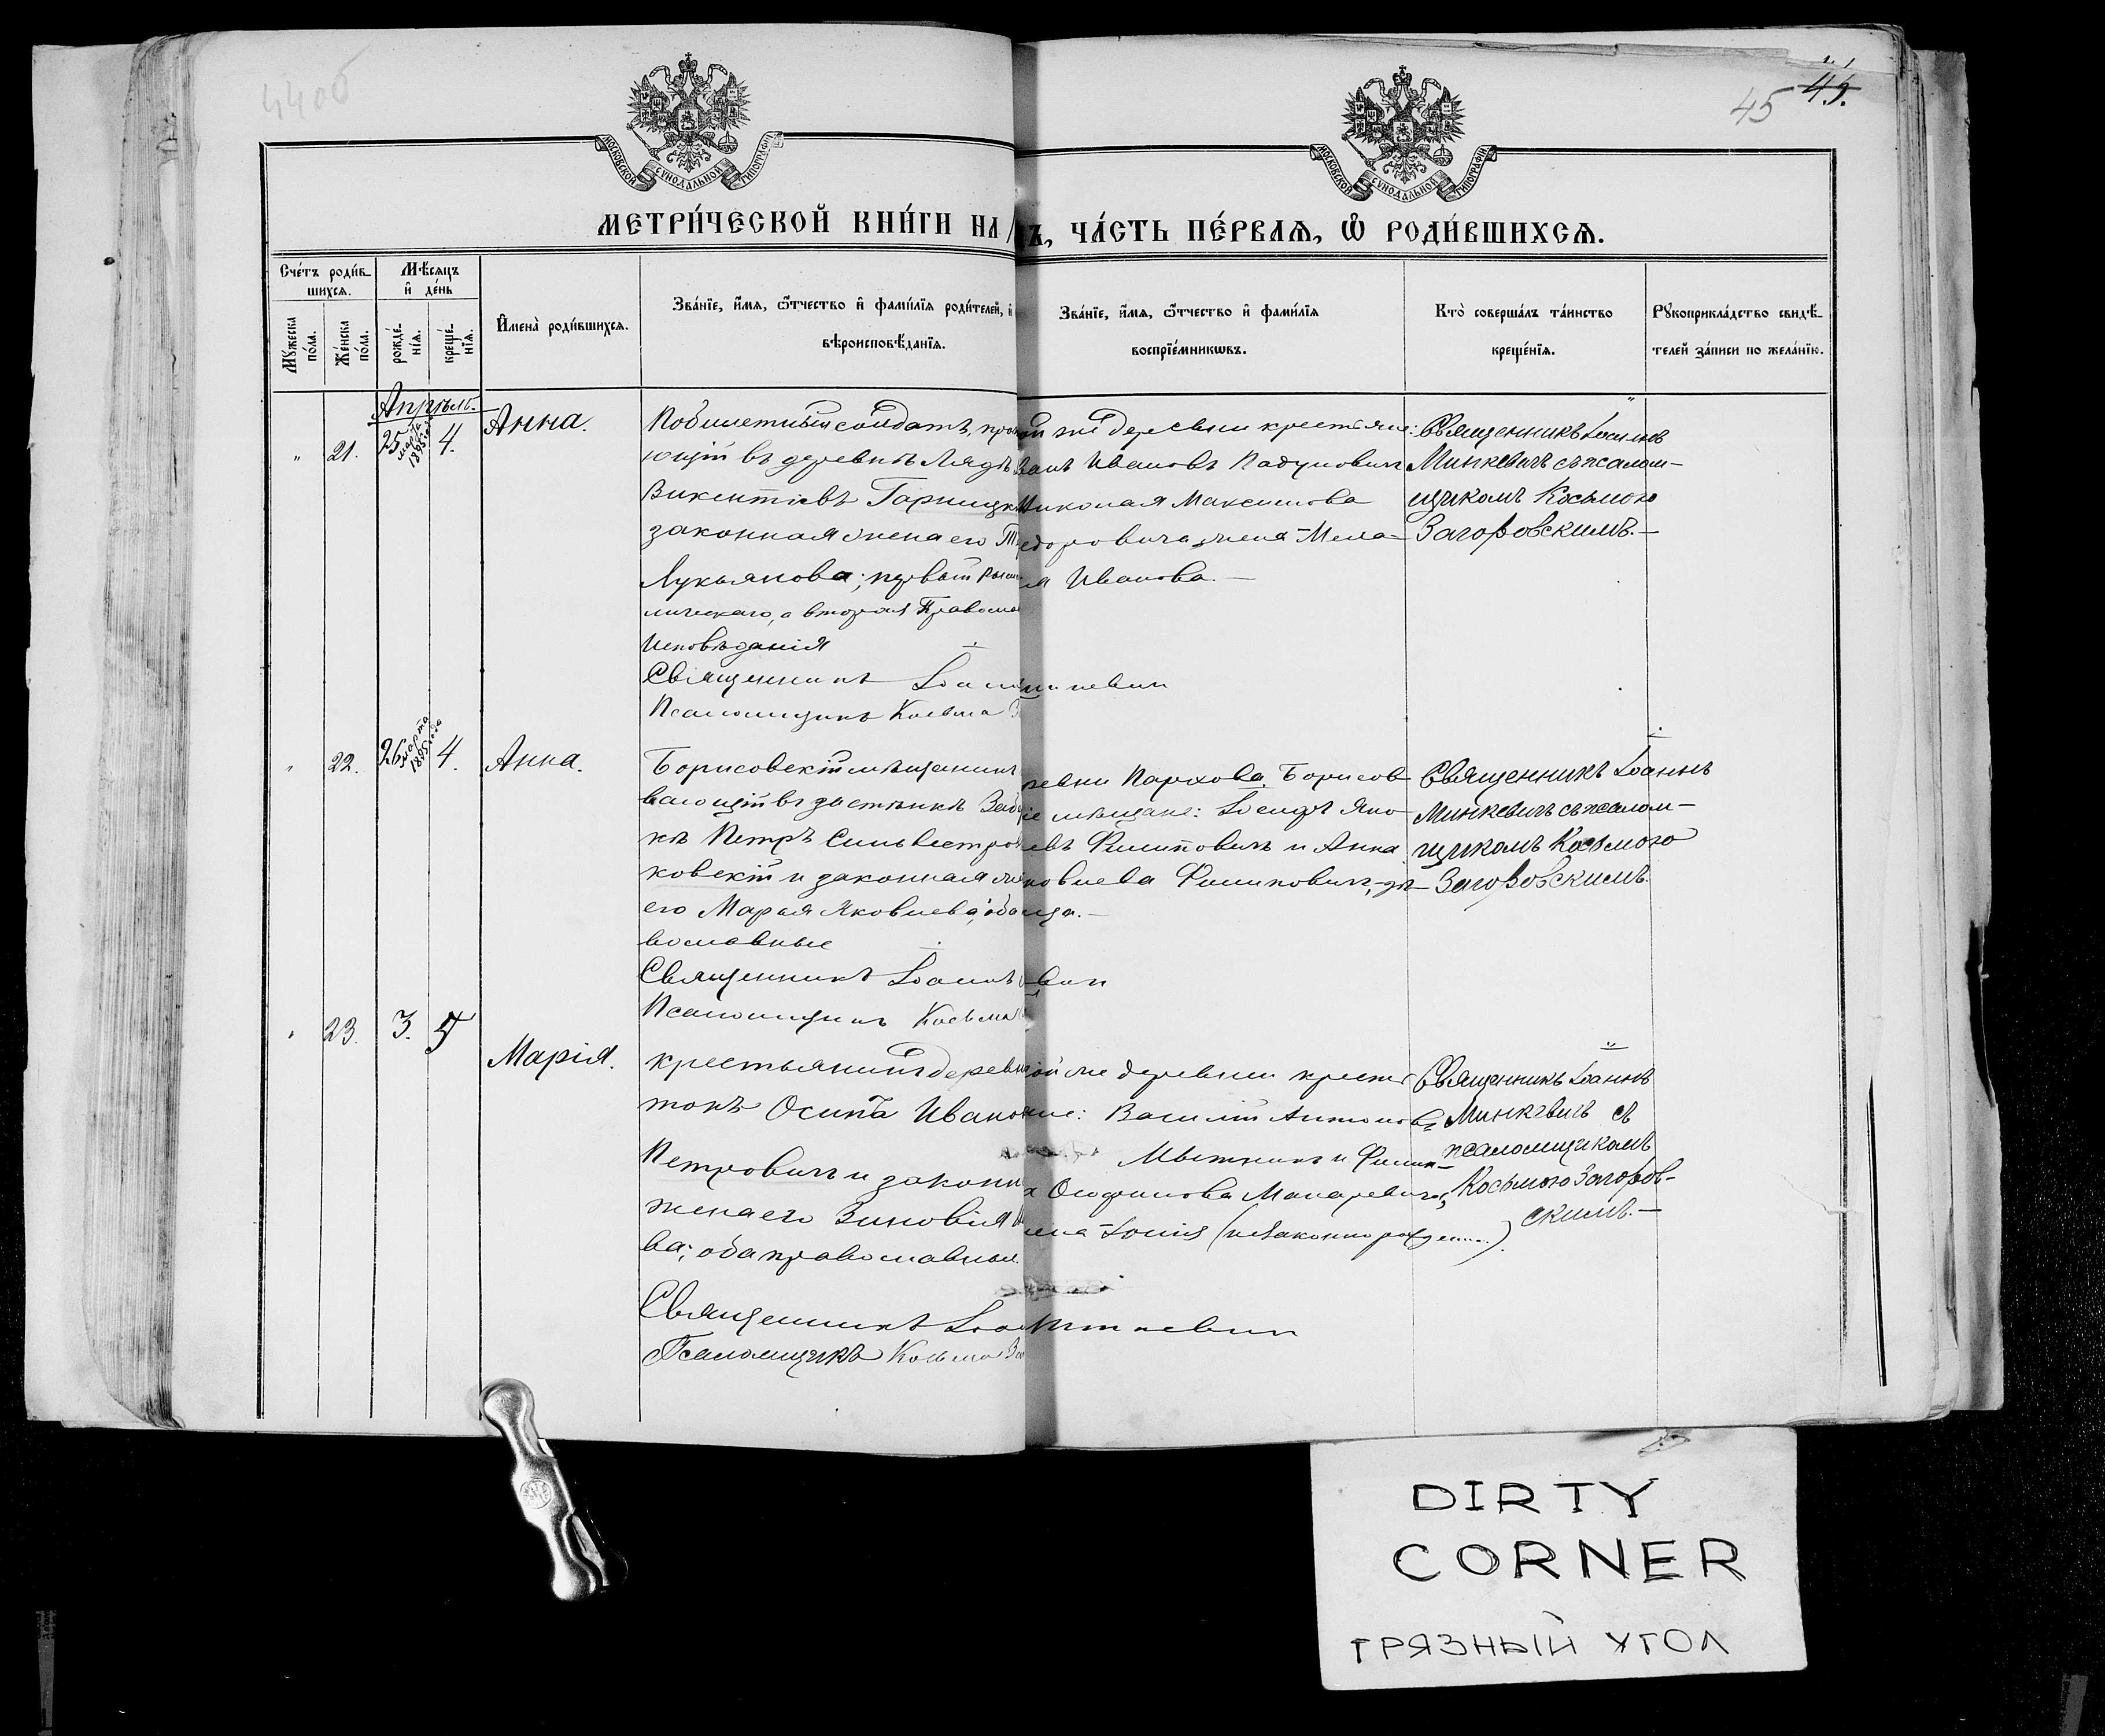 44об
45 45.
МОСКОВСКОЙ СѴНОДАЛЬНОЙ ТИПОГРАФІИ
МОСКОВСКОЙ СѴНОДАЛЬНОЙ ТИПОГРАФІИ
МЕТРИ́ЧЕСКОЙ КНИ́ГИ НА
Ъ, ЧА́СТЬ ПЕ́РВАЯ, Ѽ РОДИ́ВШИХСЯ.
Сче́тъ роди́в-
шихся.
Мѣ́сяцъ
и҆ де́нь
Му́жеска
по́ла.
Же́нска
по́ла.
рожде́-
нїя.
креще́-
нїя.
И҆мена̀ роди́вшихся.
Зва́нїе, и҆́мя, ѻ҆́тчество и҆ фами́лїя роди́телей, и҆
вѣроисповѣ́данїя.
Зва́нїе, и҆́мя, ѻ҆́тчество и҆ фами́лїя
воспрїе́мникѡвъ.
Кто̀ соверша́лъ та́инство
креще́нїя.
Рꙋкоприкла́дство свидѣ́-
телей за́писи по жела́нїю.
Апрѣль.
" 21. 25 марта 1895 года 4. Анна.
Побилетный солдатъ, про
ющій въ деревнѣ Лядѣ
Викентіевъ Гарницк
законная жена его
Лукьянова; первый Рим
лическаго, а вторая Правосла
Исповѣданія
Священникъ Іоан
Псаломщикъ Косьма
той же деревни крестьяне:
Иванъ Ивановъ Падуновичъ
Николая Максимова
доровича жена Мела-
я Иванова.—
Священникъ Іоаннъ
Минкевичъ съ псалом-
щикомъ Косьмою
Загоровскимъ.—
" 22. 26 марта 1895 года 4. Анна.
Борисовскій мѣщанинъ
вающій въ застѣнкѣ
кѣ Петръ Сильвестров
ковскій и законная же
его Марья Яковлева; оба
вославные
Священникъ Іоаннъ
Псаломщикъ Косьма
ревни Пархова, Борисов
іе мѣщане: Іосифъ Яко-
евъ Филиповичъ и Анна
ковлева Филиповичъ, дѣ-
ица.—
Священникъ Іоаннъ
Минкевичъ съ псалом-
щикомъ Косьмою
Загоровскимъ.
" 23. 3. 5 Марія.
крестьянинъ деревни
токъ Осипъ Ивано
Петровичъ и законн
жена его Зиновія
ва; оба православные.
Священникъ Іоа
Псаломщикъ Косьма
ой же деревни кресть
не: Василій Антонов
Мытникъ и Филип-
Макаревича,
(незаконнорожден...).
Священникъ Іоаннъ
Минкевичъ съ
псаломщикомъ
Косьмою Загоров-
скимъ.—
DIRTY
CORNER
ГРЯЗНЫЙ УГОЛ